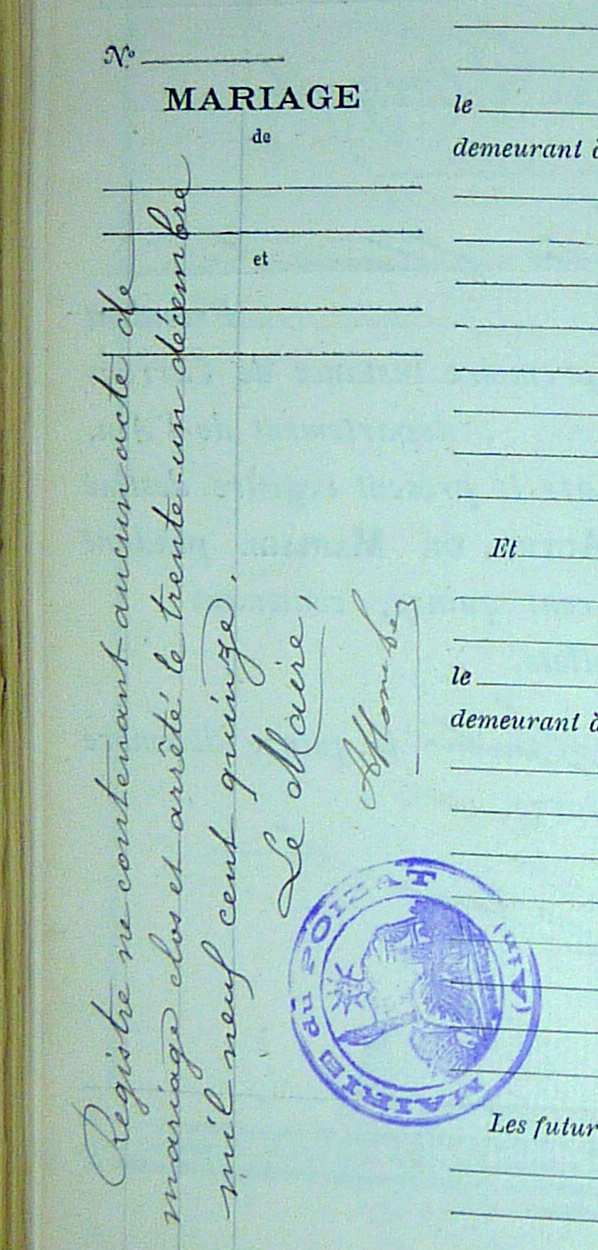 N°
MARIAGE
de
et
Registre ne contenant aucun acte de
mariage clos et arrêté le trente-un décembre
mil neuf cent quinze.
Le Maire,
MAIRIE du POIZAT
(Ain)
le
demeurant à
Et
le
demeurant à
Les futur